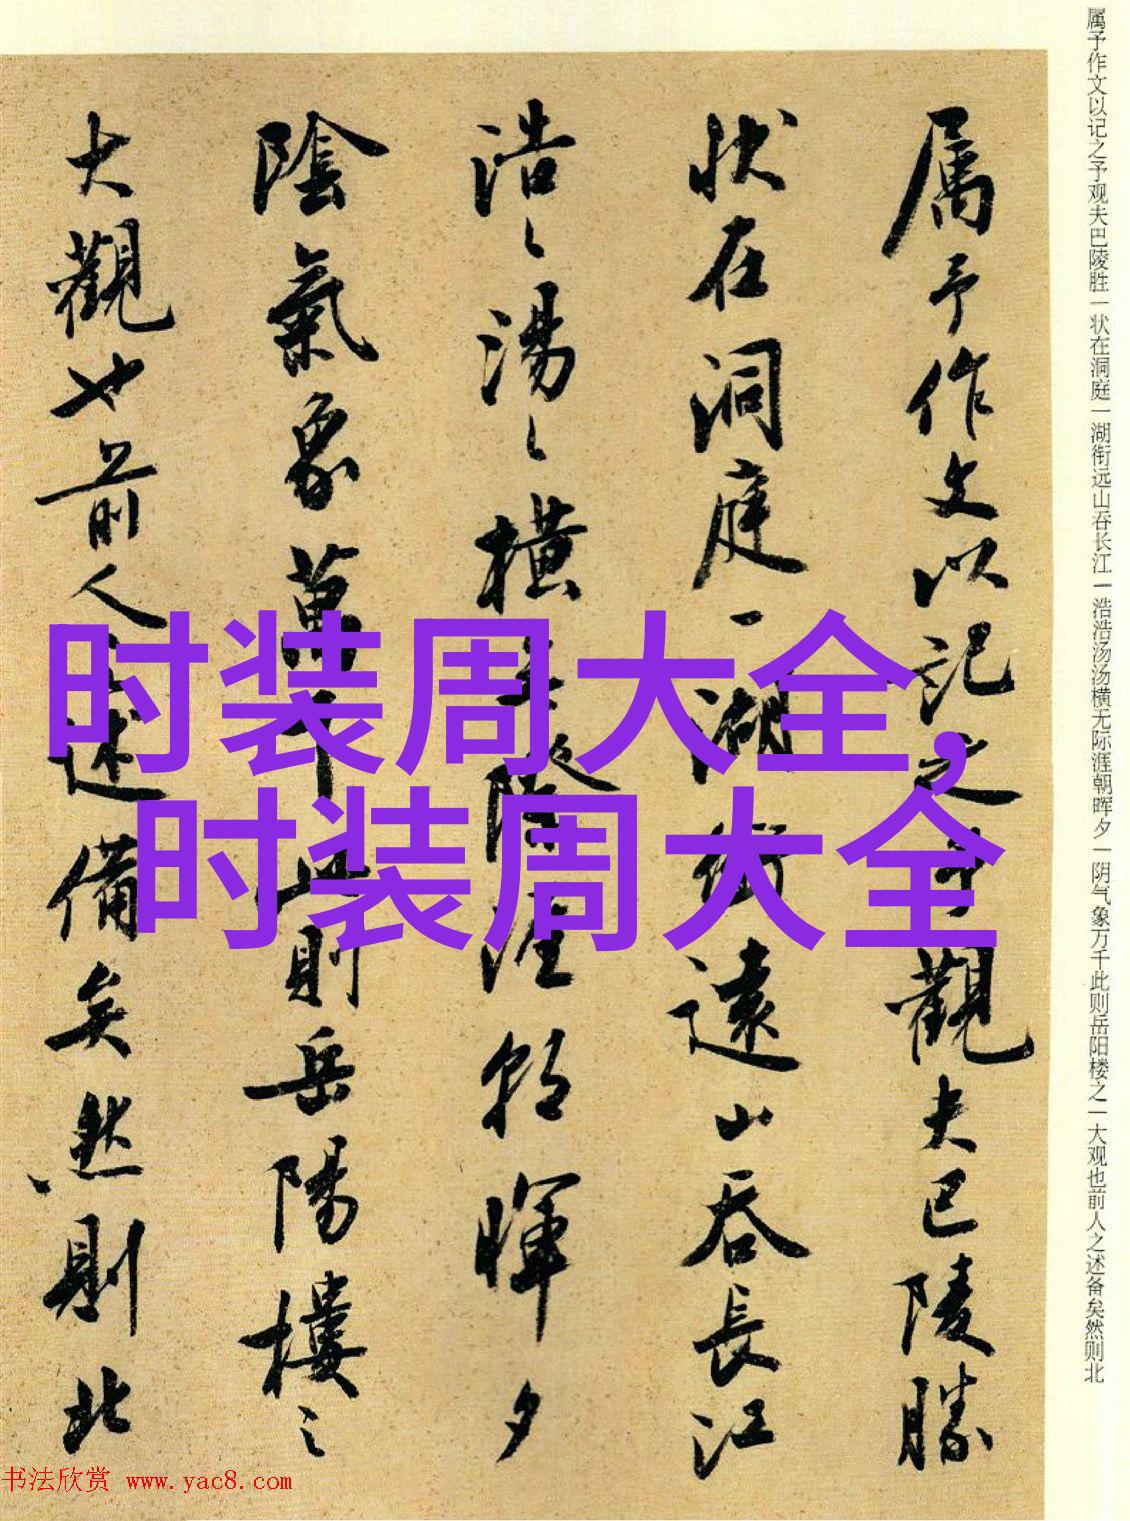 属予作文以记之予观夫巴陵胜一状在洞庭一湖衔远山吞长江一浩浩汤汤横无际涯朝晖夕一阴气象万千此则岳阳楼之一大观也前人之述备矣然则北
属予作文以记之予觀夫巴陵勝
状在洞庭一湖銜遠山吞長江
浩〻湯〻橫無際涯朝暉夕
陰氣象萬千此則岳陽樓之
大觀也前人之述備矣然則北
时装周大全,
时装周大全
书法欣赏 www.yac8.com